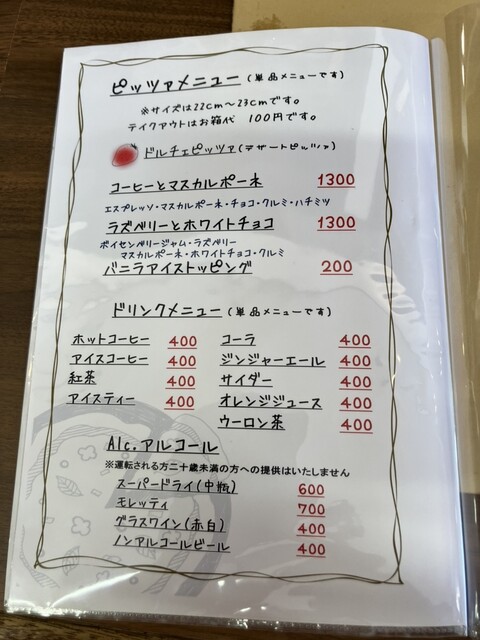 ピッツァメニュー (単品メニューです)
※サイズは22cm～23cmです。
テイクアウトはお箱代 100円です。
ドルチェピッツァ(デザートピッツァ)
コーヒーとマスカルポーネ 1300
エスプレッソ・マスカルポーネ・チョコ・クルミ・ハチミツ
ラズベリーとホワイトチョコ 1300
ボイセンベリージャム・ラズベリー
マスカルポーネ・ホワイトチョコ・クルミ
バニラアイストッピング 200
ドリンクメニュー (単品メニューです)
ホットコーヒー 400 コーラ 400
アイスコーヒー 400 ジンジャーエール 400
紅茶 400 サイダー 400
アイスティー 400 オレンジジュース 400
ウーロン茶 400
Alc.アルコール
※運転される方二十歳未満の方への提供はいたしません
スーパードライ(中瓶) 600
モレッティ 700
グラスワイン(赤白) 400
ノンアルコールビール 400